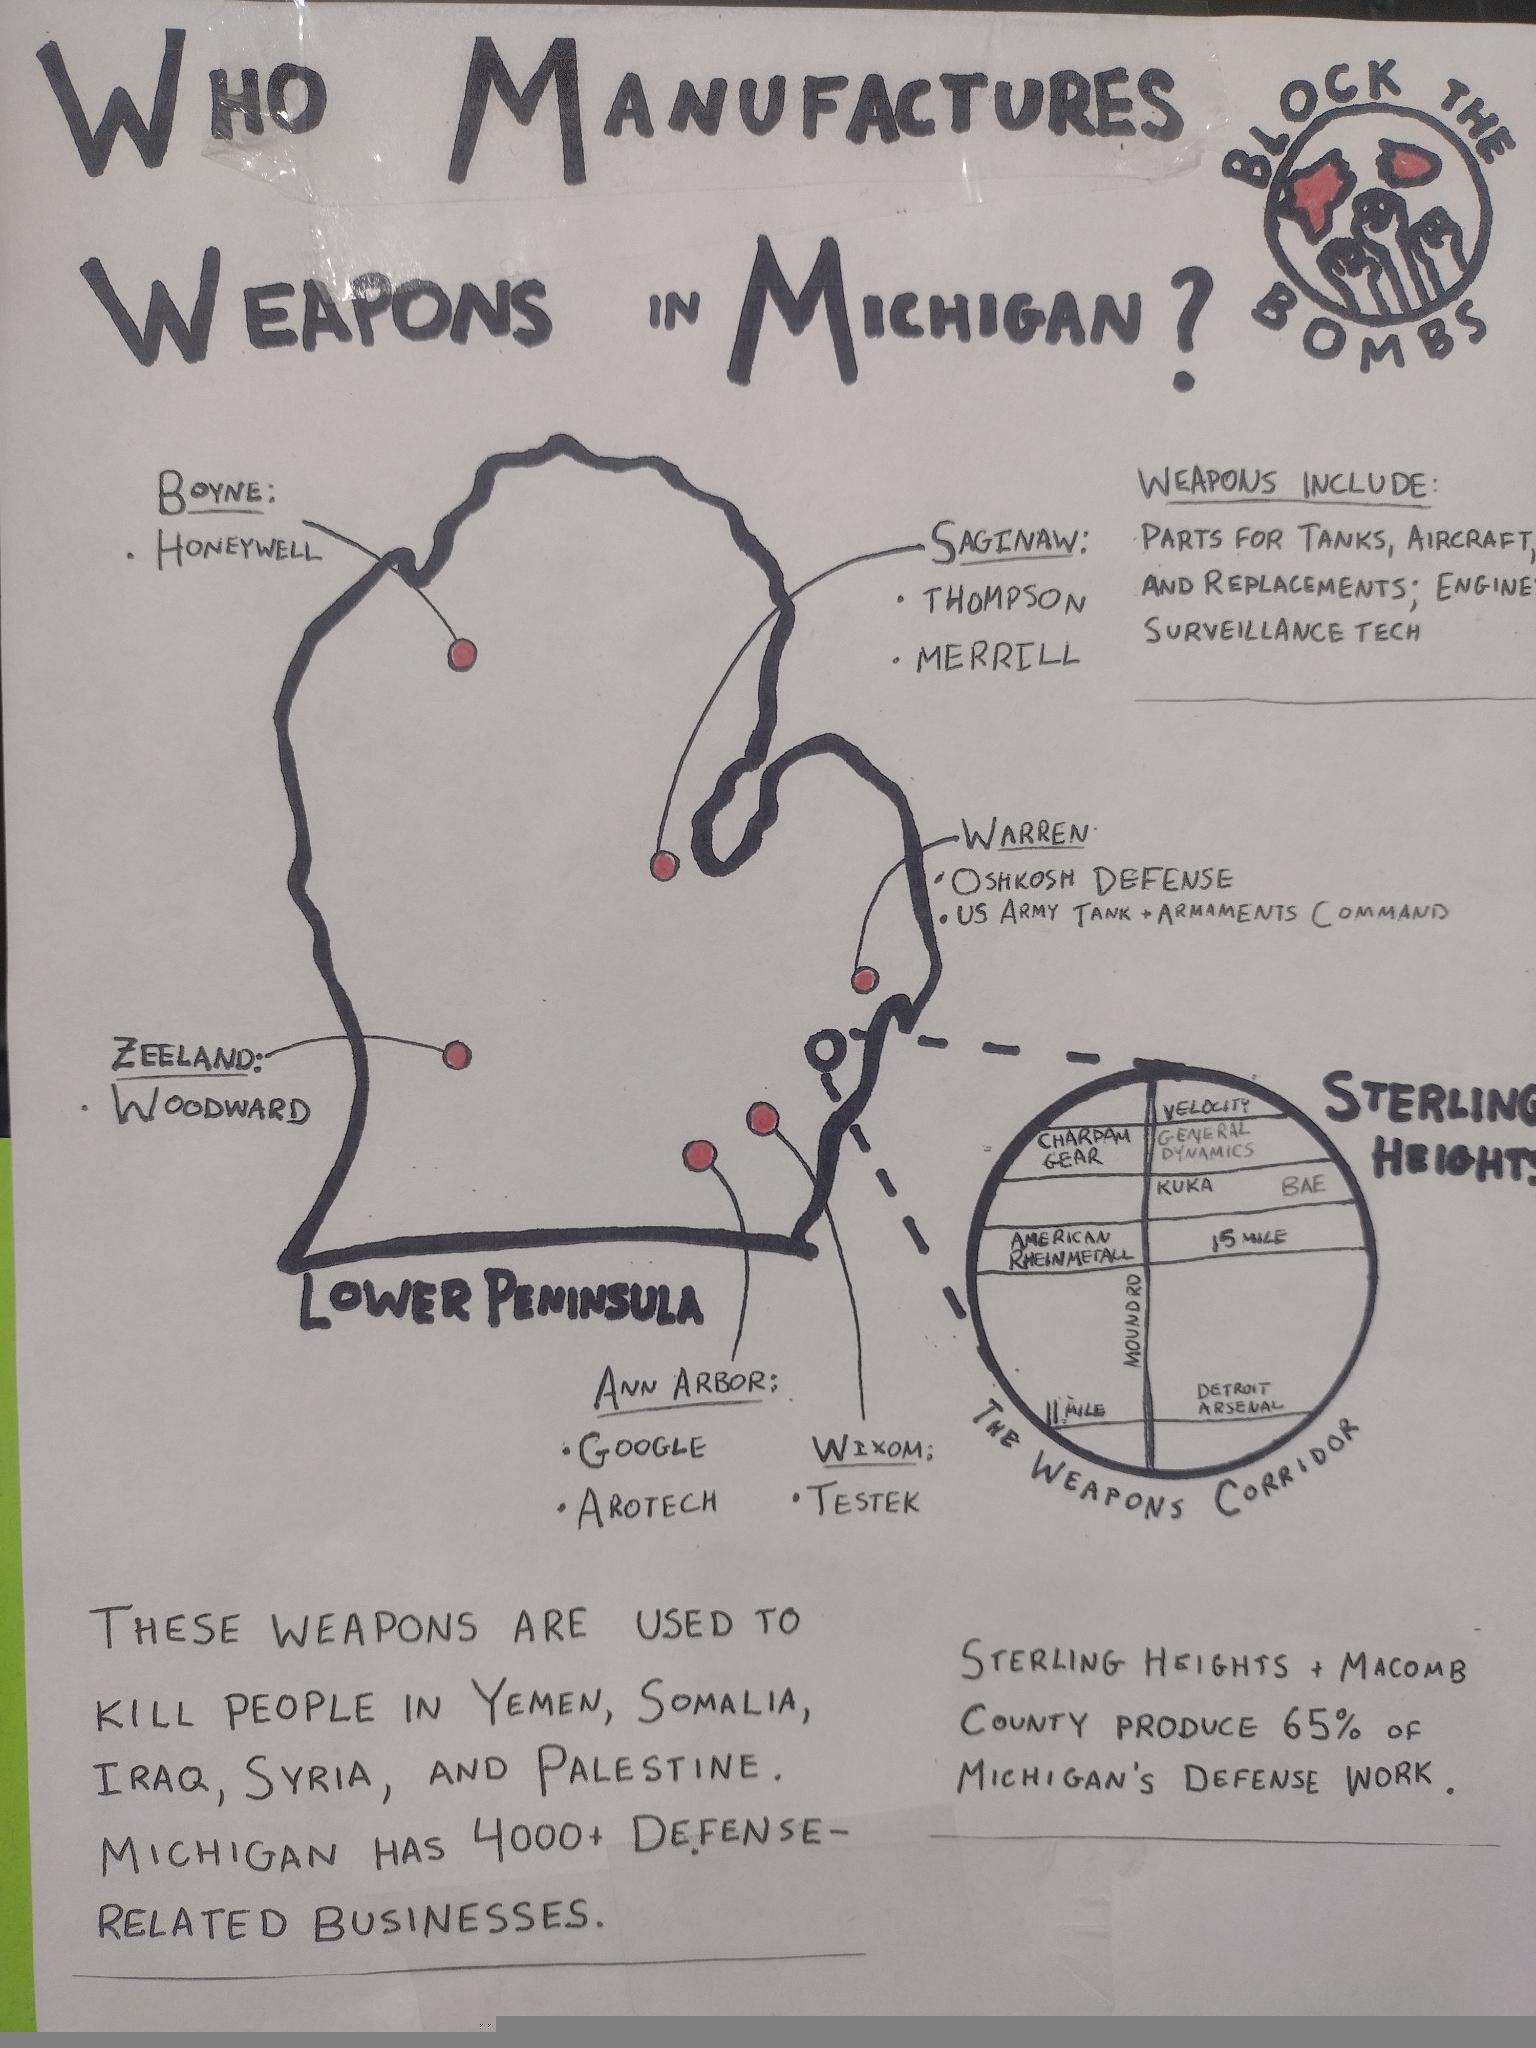 WHO MANUFACTURES
WEAPONS IN MICHIGAN?
BLOCK THE
BOMBS
BOYNE:
· HONEYWELL
SAGINAW:
· THOMPSON
· MERRILL
WEAPONS INCLUDE:
PARTS FOR TANKS, AIRCRAFT,
AND REPLACEMENTS; ENGINE
SURVEILLANCE TECH
WARREN:
· OSHKOSH DEFENSE
· US ARMY TANK + ARMAMENTS COMMAND
ZEELAND:
· WOODWARD
STERLING
HEIGHTS
VELOCITY
CHARDAM
GEAR
GENERAL
DYNAMICS
KUKA
BAE
AMERICAN
RHEINMETALL
15 MILE
MOUND RD
11 MILE
DETROIT
ARSENAL
THE WEAPONS CORRIDOR
LOWER PENINSULA
ANN ARBOR:
· GOOGLE
· AROTECH
WIXOM:
· TESTEK
THESE WEAPONS ARE USED TO
KILL PEOPLE IN YEMEN, SOMALIA,
IRAQ, SYRIA, AND PALESTINE.
MICHIGAN HAS 4000+ DEFENSE-
RELATED BUSINESSES.
STERLING HEIGHTS + MACOMB
COUNTY PRODUCE 65% OF
MICHIGAN'S DEFENSE WORK.